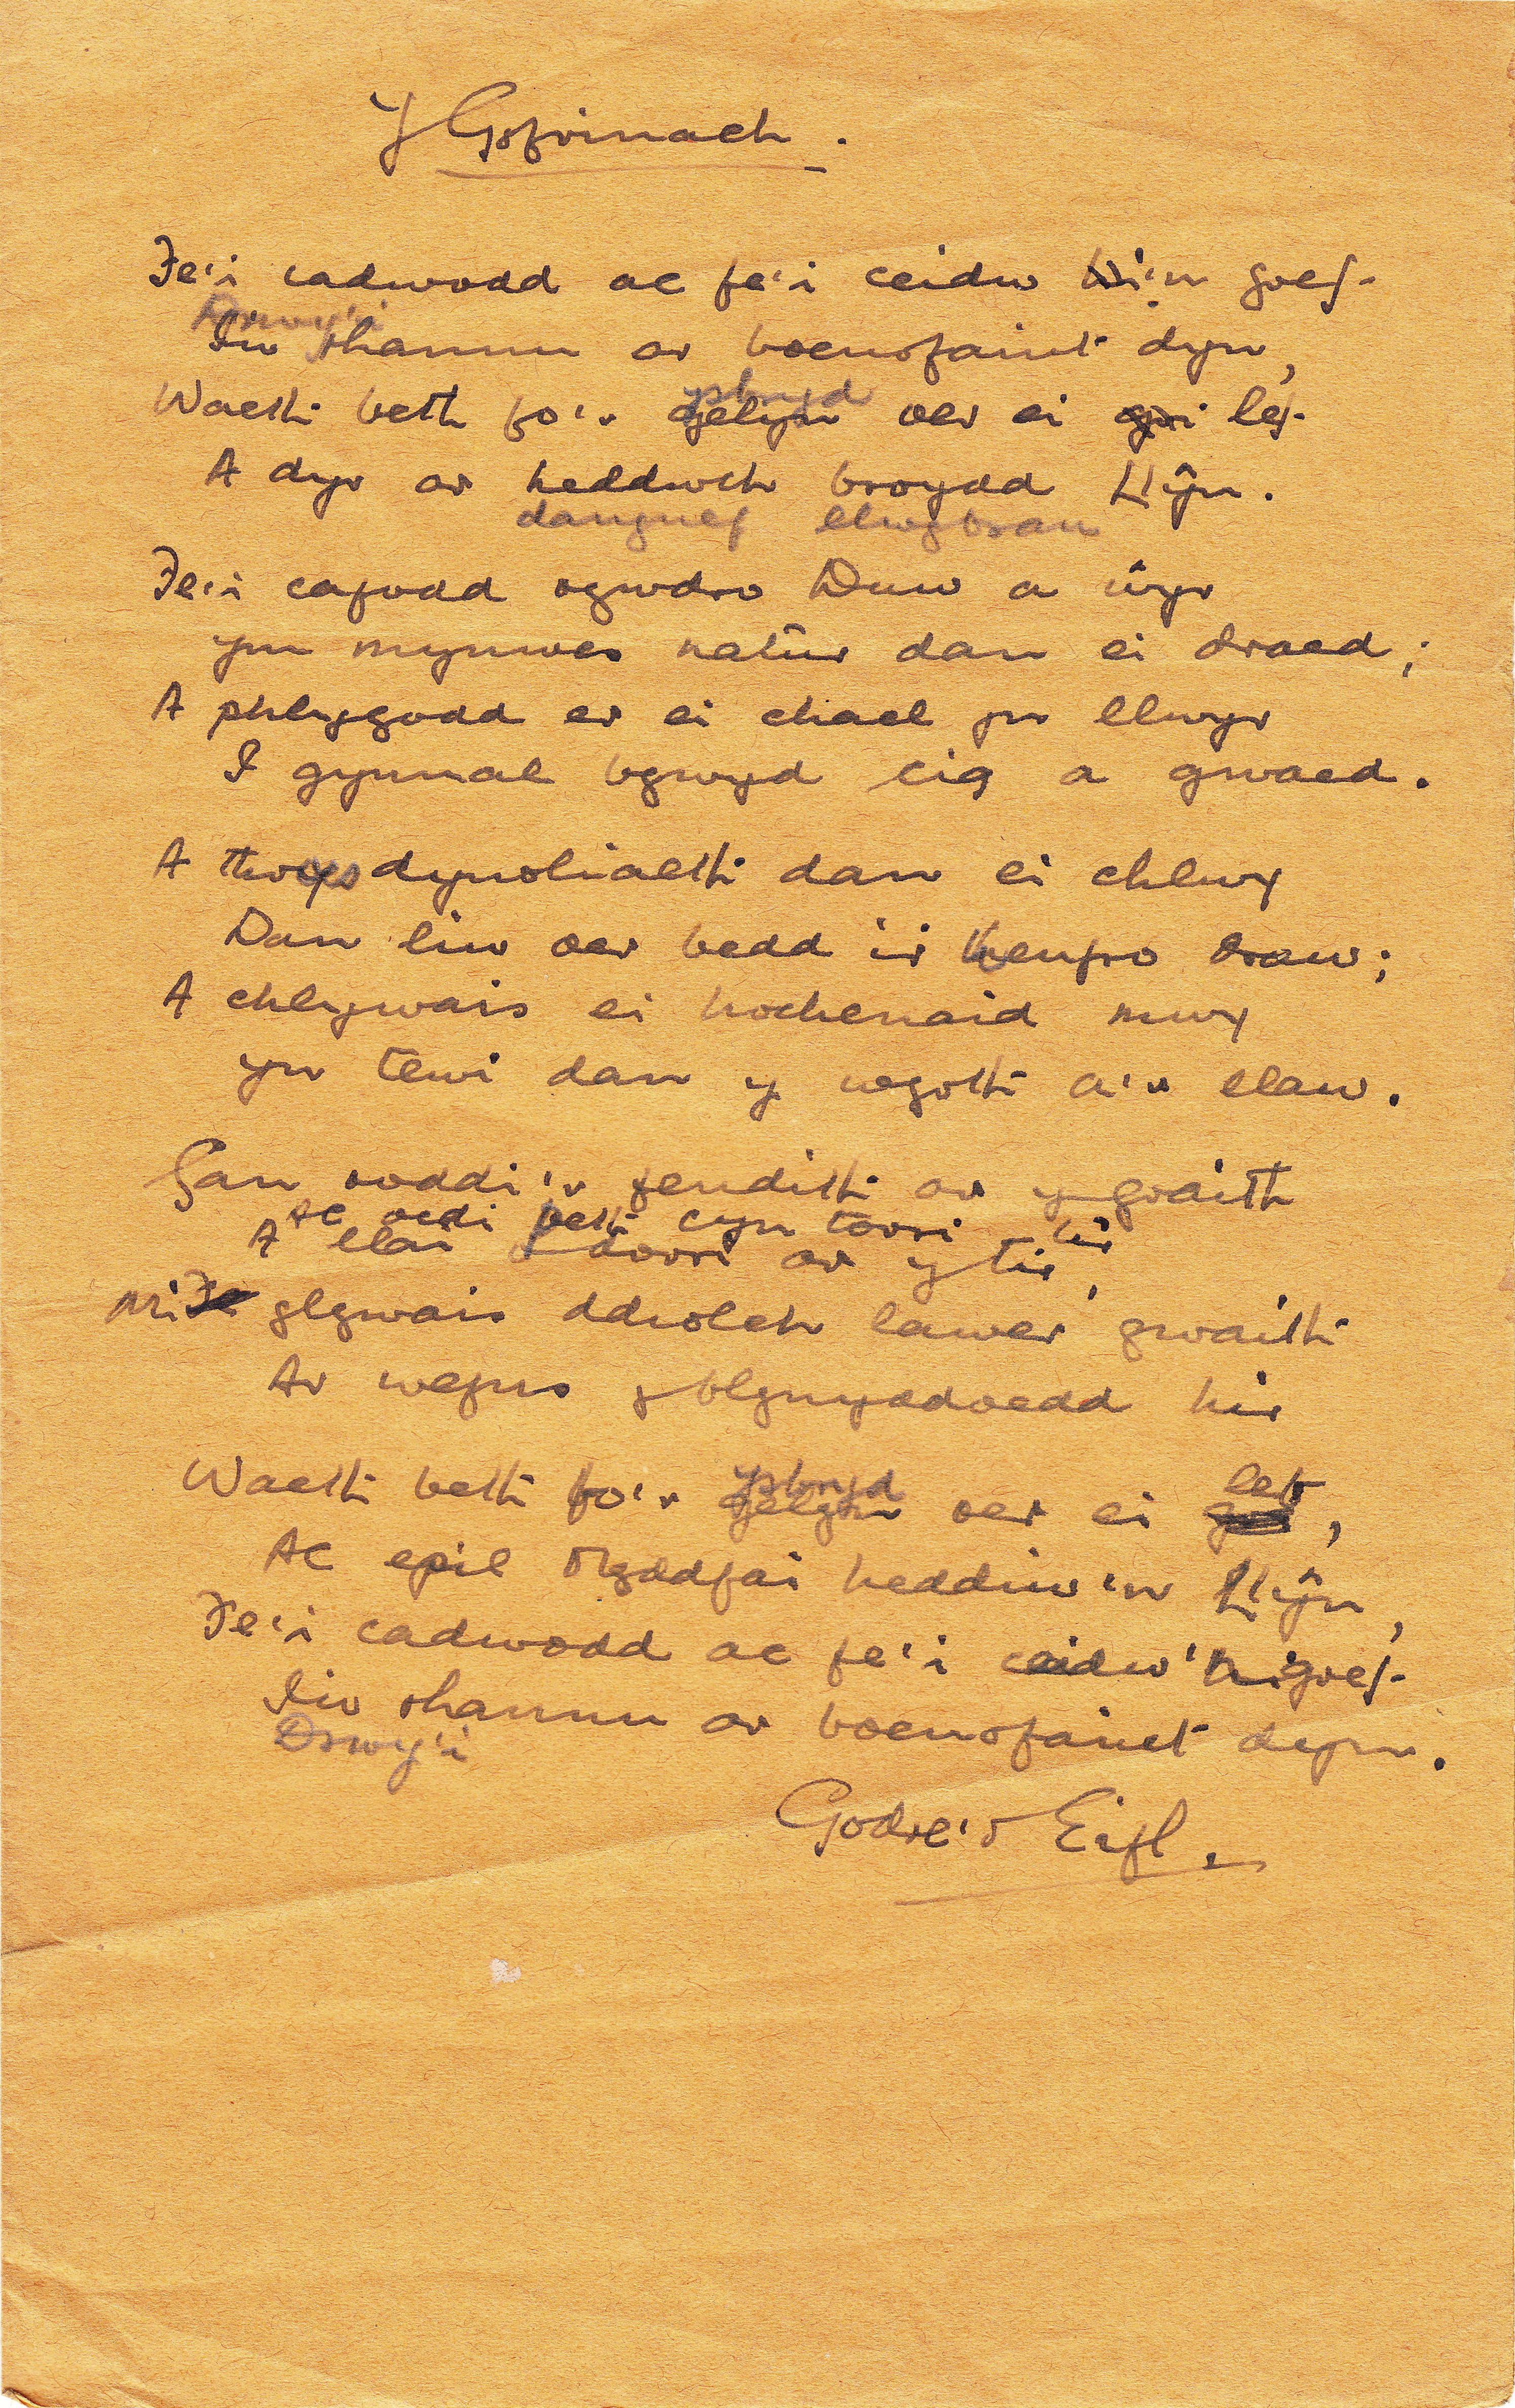 Y Gyfrinach.
Fe'i cadwodd ac fe'i ceidw hi'n goef
Drwy'i
Iw rhannu ar boenofaint dyn,
ysbryd
Waeth beth fo'r gelyn oer ei gri lef
A dyr ar heddwch broydd Llŷn.
dangnef llwybrau
Fe'i cafodd ogwdro Duw a ŵyr
Ym mynwes natur dan ei draed;
A phlygodd er ei chael yn llwyr
I gynnal bywyd cig a gwaed.
A throes dynoliaeth dan ei chlwy
Dan liw oer bedd i'r henfro draw;
A chlywais ei hochenaid mwy
Yn tewi dan y wyrth a'r llaw.
Gan roddi'r fendith ar y graith
Ac oedi peth cyn torri hir
A llai o dorri ar y tir,
Mi Fe glywais ddiolch lawer gwaith
Ar wefus y blynyddoedd hir
ysbryd lef
Waeth beth fo'r gelyn oer ei gri,
Ac epil Myddfai heddiw'n Llŷn,
Fe'i cadwodd ac fe'i ceidw'n goef
I'w rhannu ar boenofaint dyn.
Drwy'i
Godre'r Eifl.